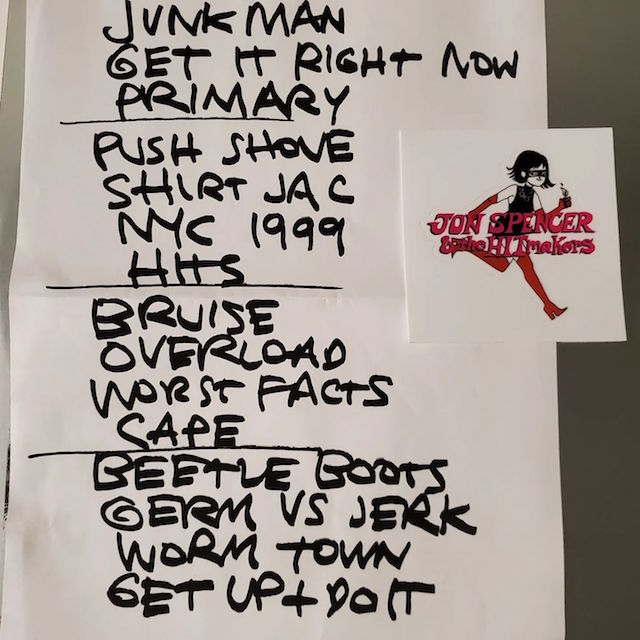 JUNK MAN
GET IT RIGHT NOW
PRIMARY
PUSH SHOVE
SHIRT JAC
NYC 1999
HITS
BRUISE
OVERLOAD
WORST FACTS
CAPE
BEETLE BOOTS
GERM VS JERK
WORM TOWN
GET UP + DO IT
JON SPENCER
& the HITmakers